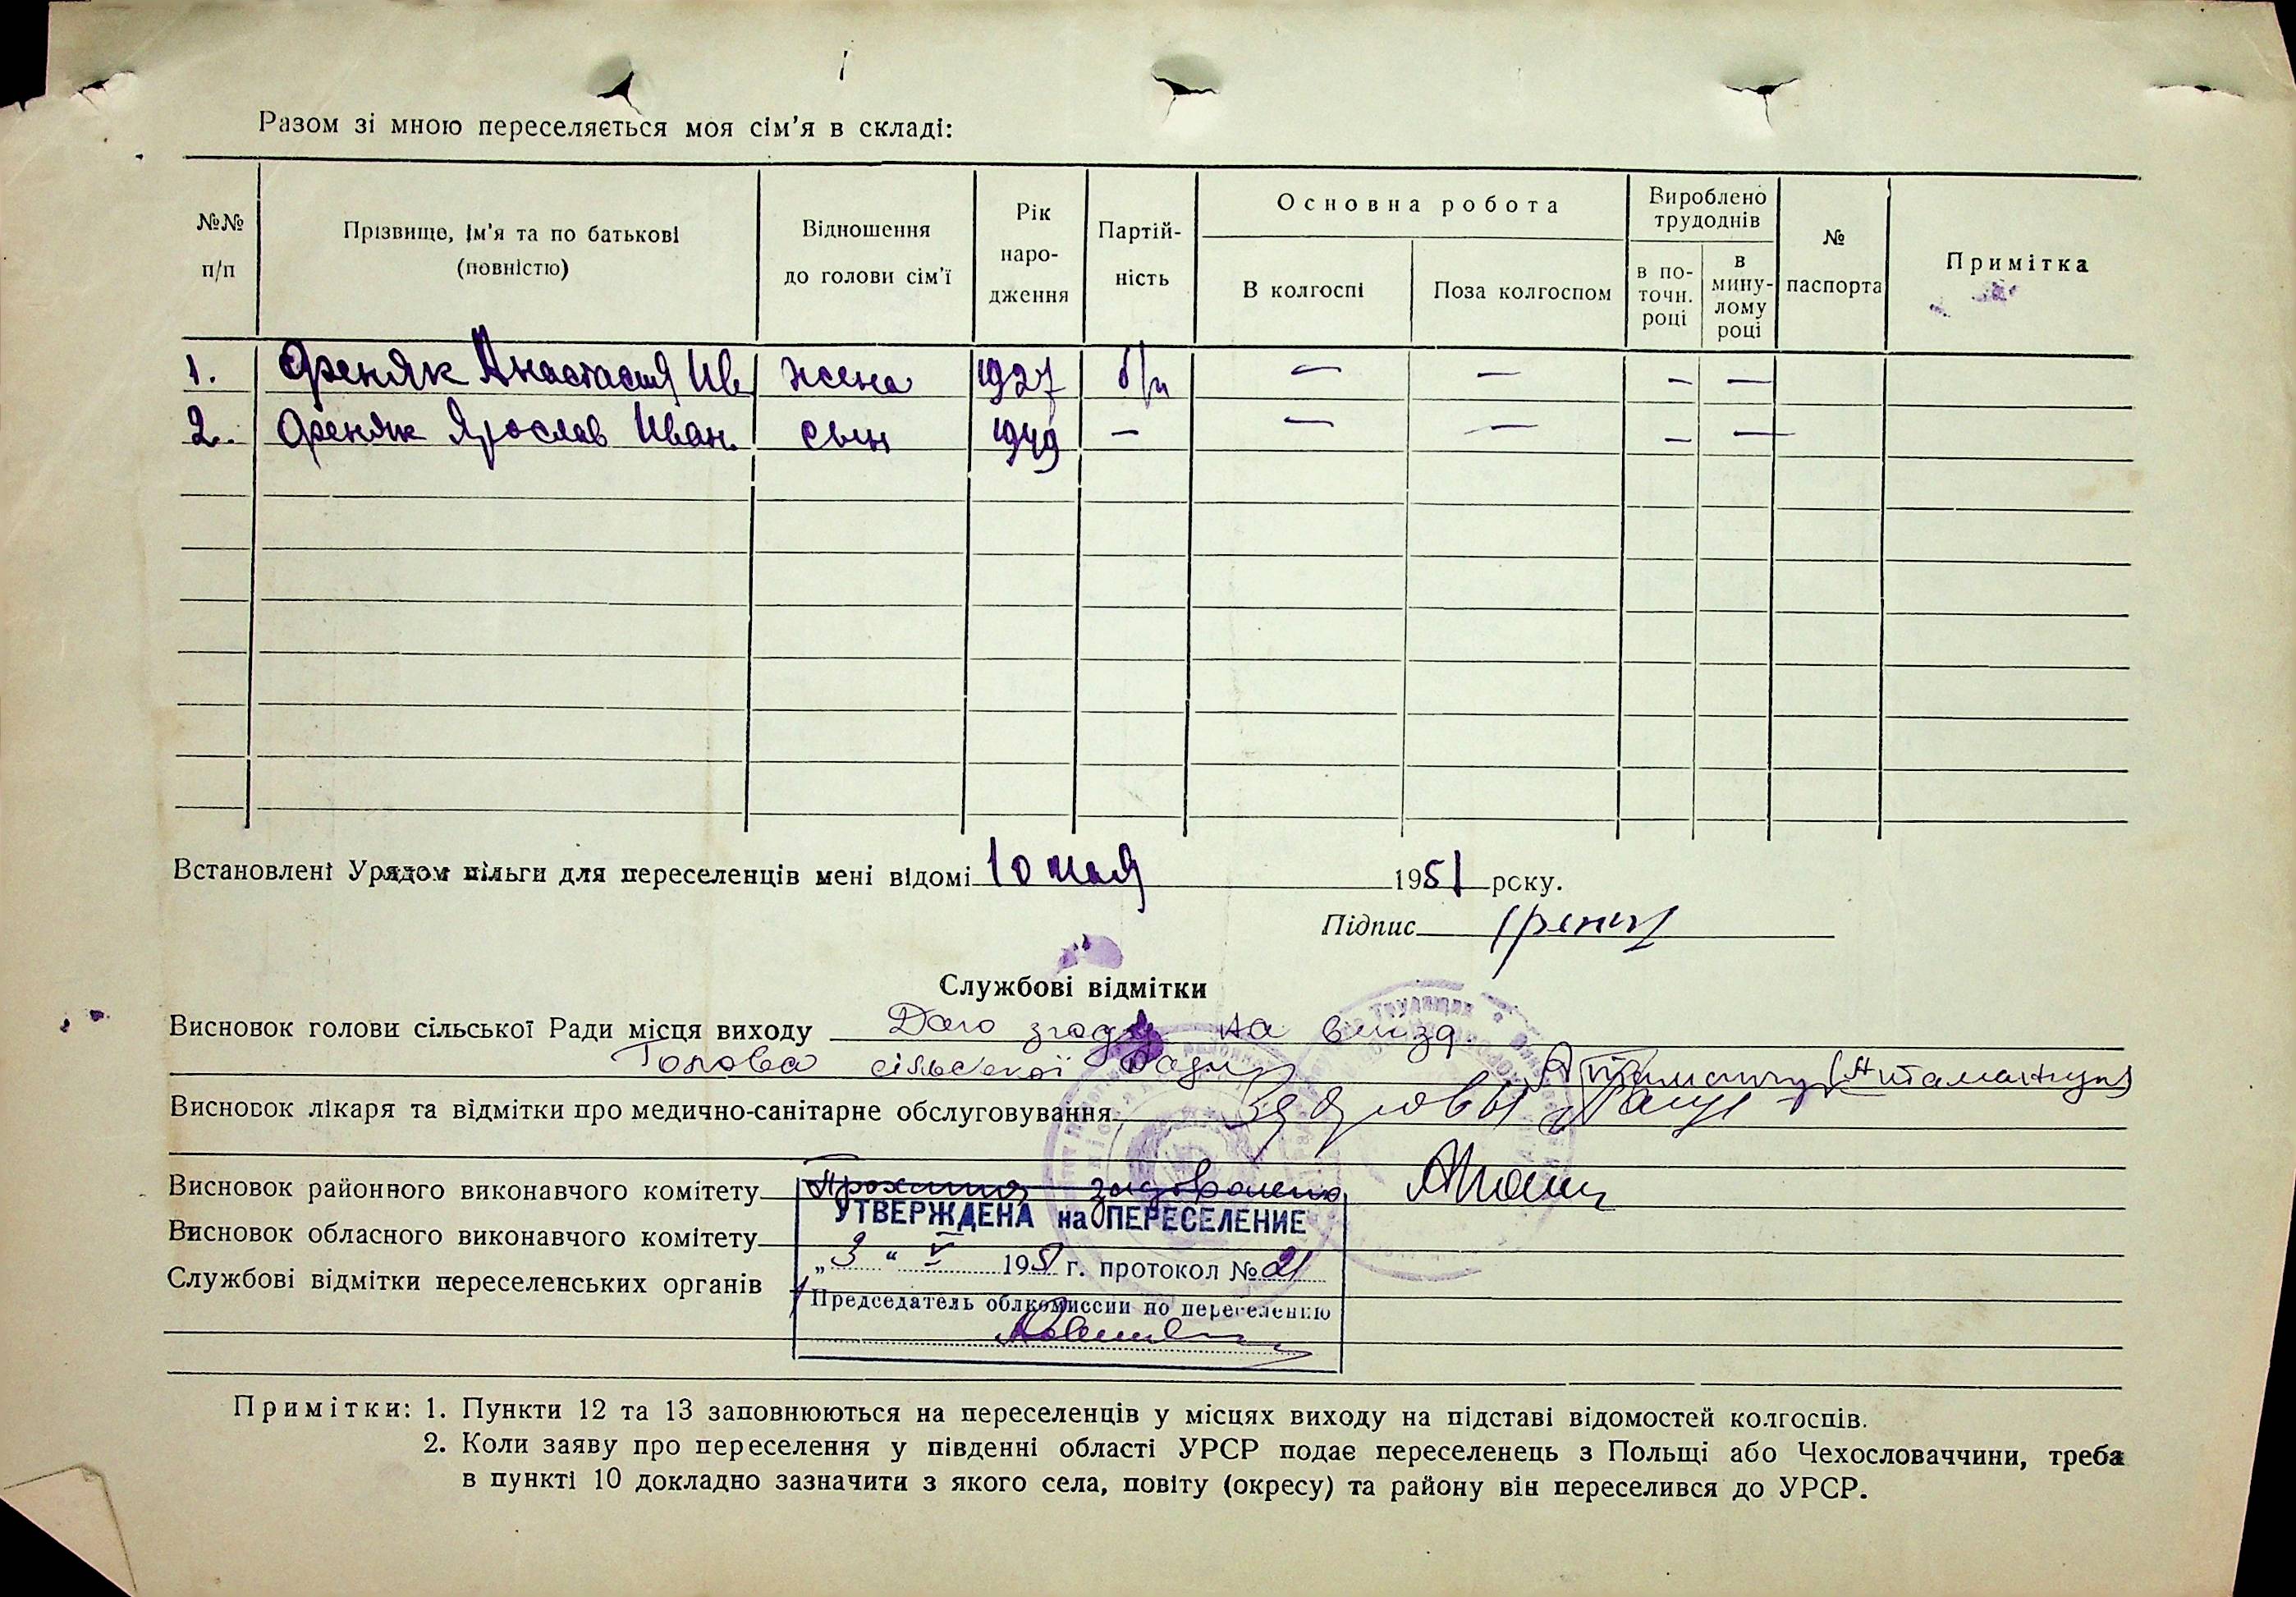 Разом зі мною переселяється моя сім'я в складі:
№№ п/п
Прізвище, ім'я та по батькові (повністю)
Відношення до голови сім'ї
Рік народження
Партійність
Основна робота
В колгоспі
Поза колгоспом
Вироблено трудоднів
в поточн. році
в минулому році
№ паспорта
Примітка
1. Феняк Анастасия Ив. жена 1927 б/п — — — —
2. Феняк Ярослав Иван. сын 1949 — — — — —
Встановлені Урядом пільги для переселенців мені відомі 10 мая 1951 року.
Підпис
Службові відмітки
Висновок голови сільської Ради місця виходу Даю згоду на виїзд.
Голова сільської Ради
Висновок лікаря та відмітки про медично-санітарне обслуговування Здоровы
Висновок районного виконавчого комітету Прохання задоволено
УТВЕРЖДЕНА на ПЕРЕСЕЛЕНИЕ
Висновок обласного виконавчого комітету
„3“ V 1951 г. протокол № 21
Службові відмітки переселенських органів
Председатель облкомиссии по переселению
Примітки: 1. Пункти 12 та 13 заповнюються на переселенців у місцях виходу на підставі відомостей колгоспів.
2. Коли заяву про переселення у південні області УРСР подає переселенець з Польщі або Чехословаччини, треба
в пункті 10 докладно зазначити з якого села, повіту (окресу) та району він переселився до УРСР.